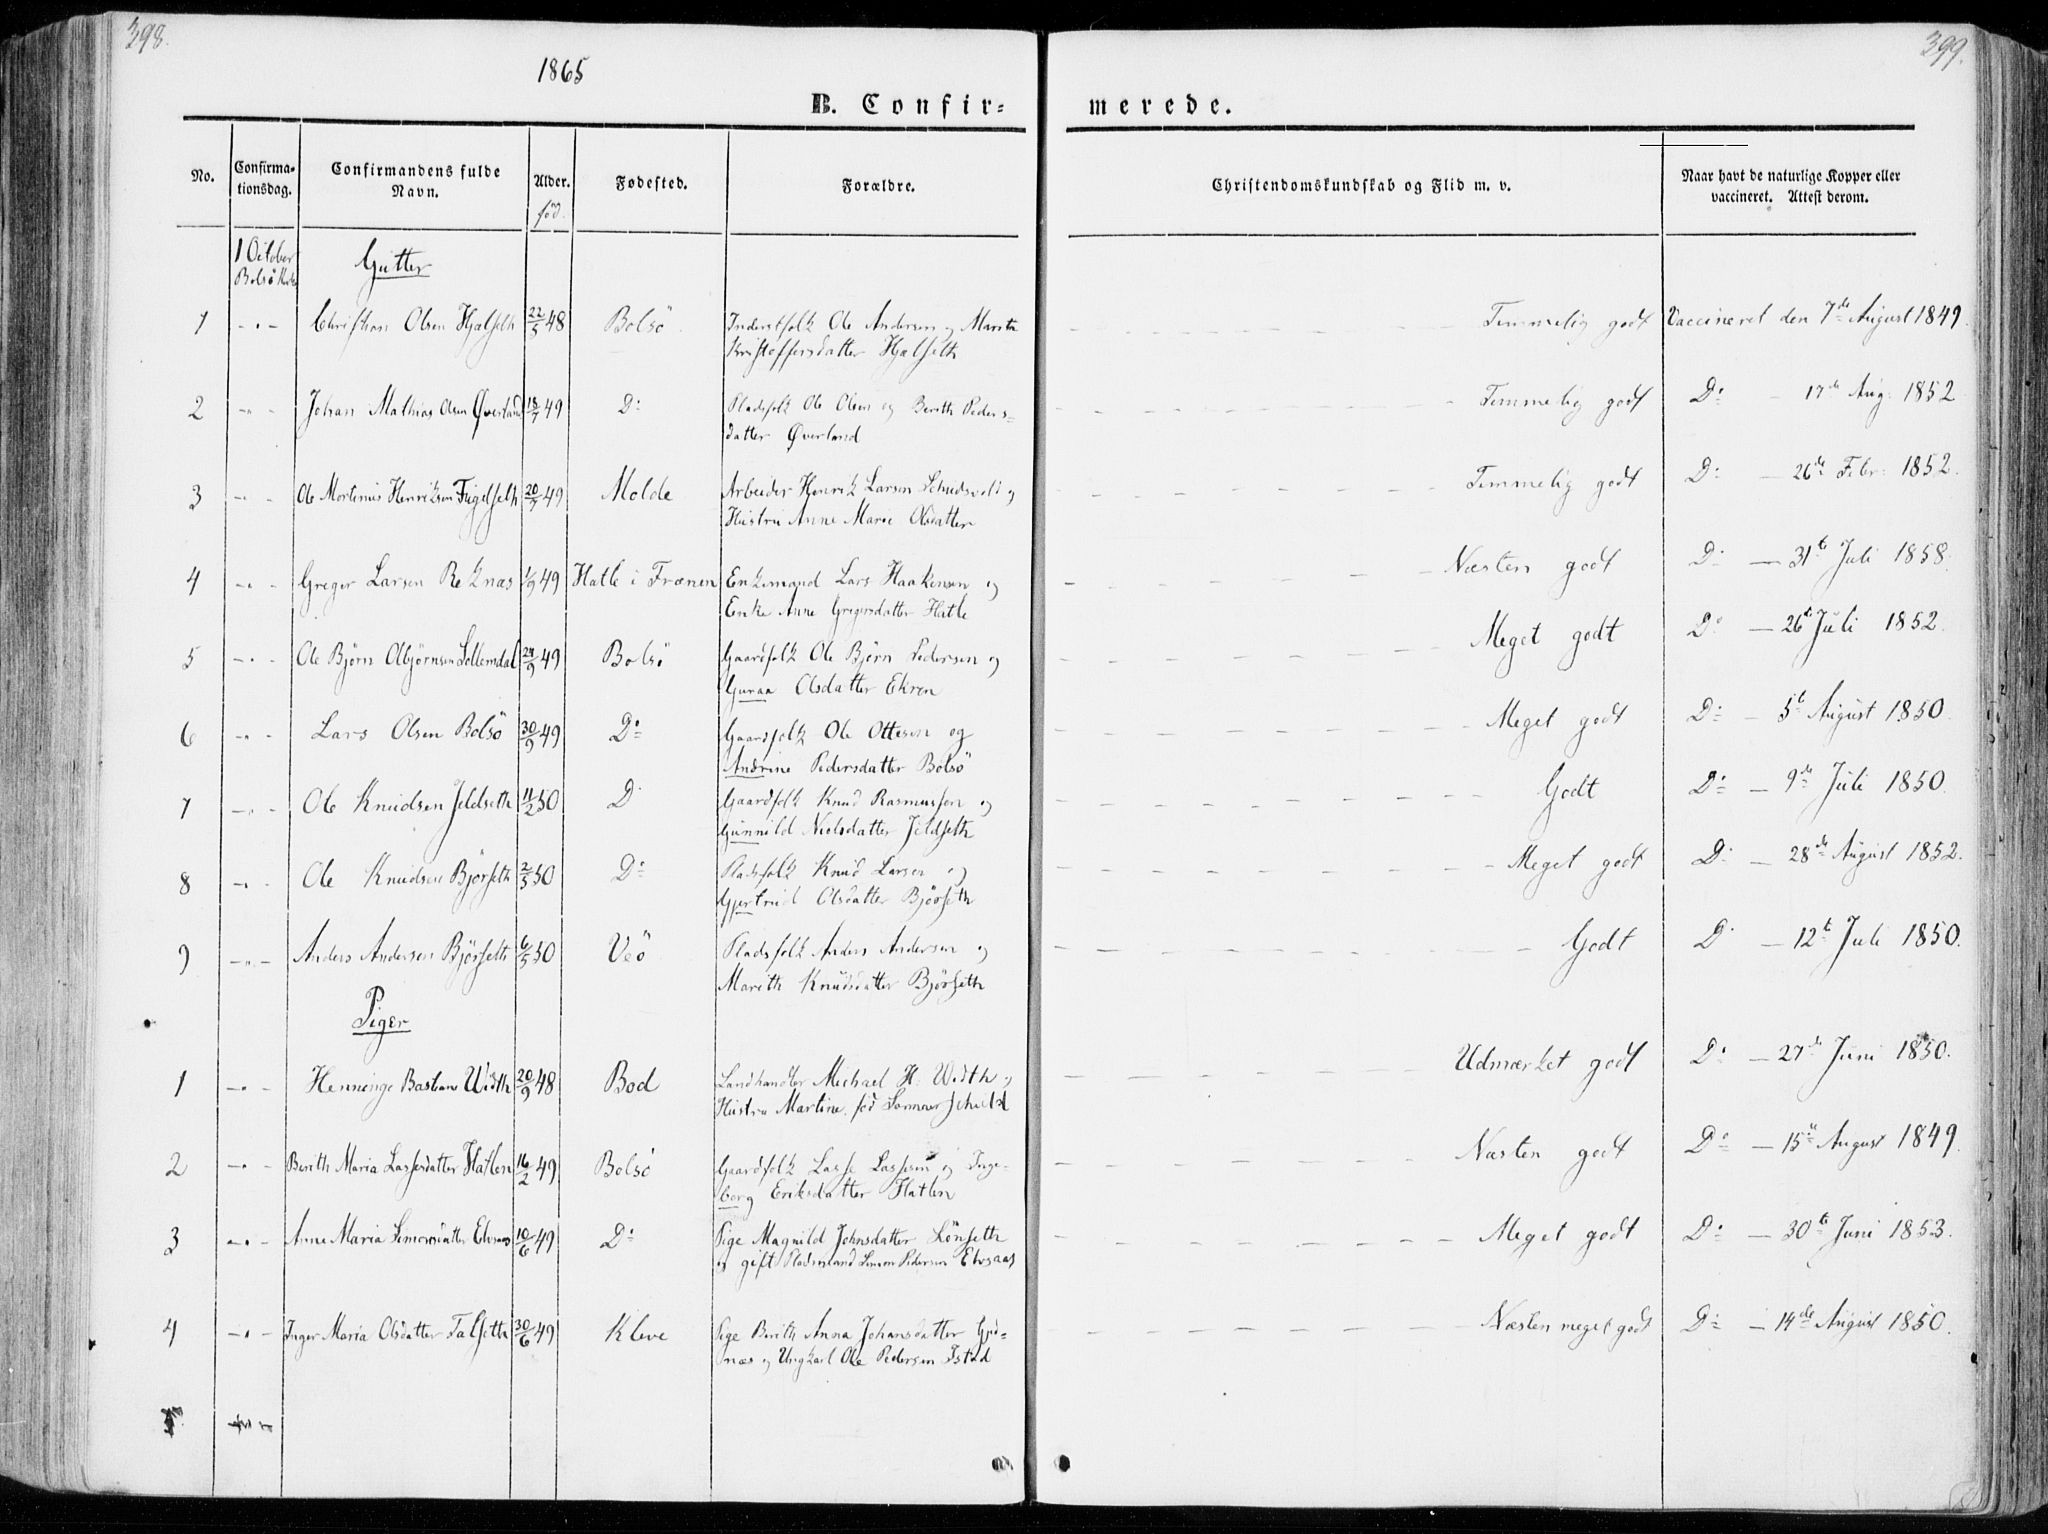 398.
399.
1865
B. Confir-
merede.
No.
Confirma-
tionsdag.
Confirmandens fulde
Navn.
Alder.
fød.
Fødested.
Forældre.
Christendomskundskab og Flid m. v.
Naar havt de naturlige Kopper eller
vaccineret. Attest derom.
1 October
Bolsö Kirke
Gutter
1 - " - Christian Olsen Hjelseth 22/5 48 Bolsö Inderstfolk Ole Andersen og Marith Temmelig godt Vaccineret den 7de August 1849.
Kristoffersdatter Hjelseth
2 - " - Johan Mathias Olsen Øverland 18/7 49 Do Pladsfolk Ole Olsen og Berith Peders- Temmelig godt Do - 17de Aug. 1852
datter Øverland
3 - " - Ole Martinus Henriksen Fugelseth 20/7 49 Molde Arbeider Henrik Larsen og Temmelig godt Do - 26de Febr. 1852.
Hustru Anne Marie Olsdatter
4 - " - Greger Larsen Reknæs 1/9 49 Hatle i Frænen Enkemand Lars Haakensen og Næsten godt Do - 31te Juli 1858.
Enke Anne Gregersdatter Hatle
5 - " - Ole Björn Olbjörnsen Sollemdal 24/9 49 Bolsö Gaardfolk Ole Björn Pedersen og Meget godt Do - 26te Juli 1852.
Guraa Olsdatter Ekren
6 - " - Lars Olsen Bolsö 30/9 49 Do Gaardfolk Ole Ottesen og Meget godt Do - 5te August 1850.
Andrine Pedersdatter Bolsö
7 - " - Ole Knudsen Jeldseth 11/2 50 Do Gaardfolk Knud Rasmussen og Godt Do - 9de Juli 1850.
Gunnild Nielsdatter Jeldseth
8 - " - Ole Knudsen Björseth 2/5 50 Do Pladsfolk Knud Larsen og Meget godt Do - 28de August 1852.
Gjertrud Olsdatter Björseth
9 - " - Anders Andersen Björseth 6/5 50 Veö Pladsfolk Anders Andersen og Godt Do - 12te Juli 1850.
Marith Knudsdatter Björseth
Piger
1 - " - Henninge Bastiane Width 20/9 48 Bod Landhandler Michael H. Width og Udmærket godt Do - 27de Juni 1850.
Hustru Martine fød Sommerschield
2 - " - Berith Maria Lassesdatter Hatlen 16/2 49 Bolsö Gaardfolk Lasse Lassesen og Inge- Næsten godt Do - 15de August 1849.
borg Eriksdatter Hatlen
3 - " - Anne Maria Simonsdatter Elvsaas 10/6 49 Do Pige Magnild Johnsdatter Lönseth Meget godt Do - 30te Juni 1853.
og gift Pladsmand Simon Pedersen Elvsaas
4 - " - Inger Maria Olsdatter Talseth 30/6 49 Kleve Pige Berith Anna Johansdatter Gjid- Næsten meget godt Do - 14de August 1850.
næs og Ungkarl Ole Pedersen Istad